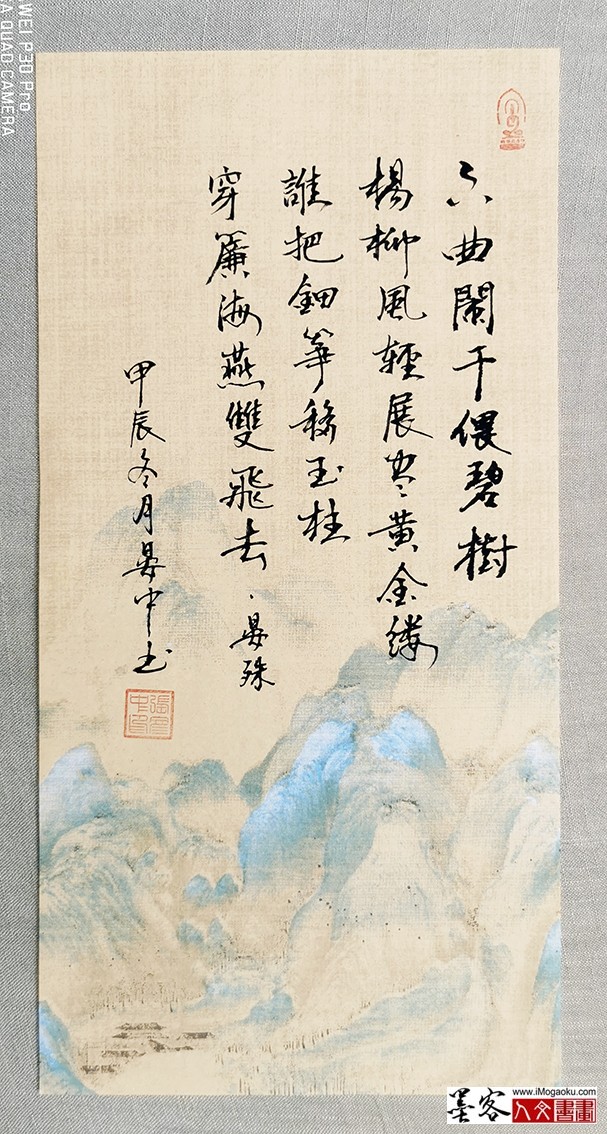 六曲闌干偎碧樹
楊柳風輕展尽黄金缕
誰把鈿箏移玉柱
穿簾海燕雙飛去·晏殊
甲辰冬月晏中书
張晏中印
WEI P30 Pro
A QUAD CAMERA
墨客
www.iMogaoku.com
人文書畫